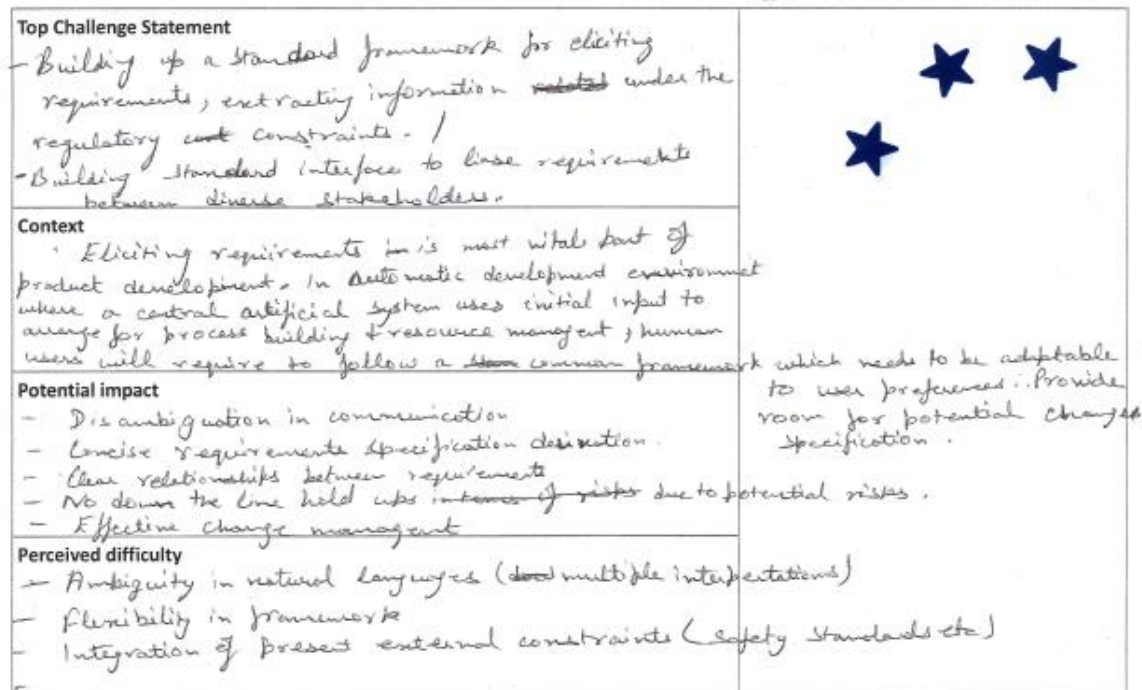 Top Challenge Statement
- Building up a standard framework for eliciting
requirements, extracting information related under the
regulatory constraints. /
- Building standard interface to liase requirements
between diverse stakeholders.
Context
Eliciting requirements in is most vital part of
product development. In Automatic development environmet
where a central artificial system uses initial input to
arrange for process building & resource managent, human
users will require to follow a common framework which needs to be adaptable
to user preferences. Provide
room for potential changes
specification.
Potential impact
- Disambiguation in communication
- Concise requirements specification derivation.
- Clear relationships between requirements
- No down the line hold ups in terms of risks due to potential risks.
- Effective change managent
Perceived difficulty
- Ambiguity in natural languages (multiple interpretations)
- Flexibility in framework
- Integration of present external constraints (safety standards etc)